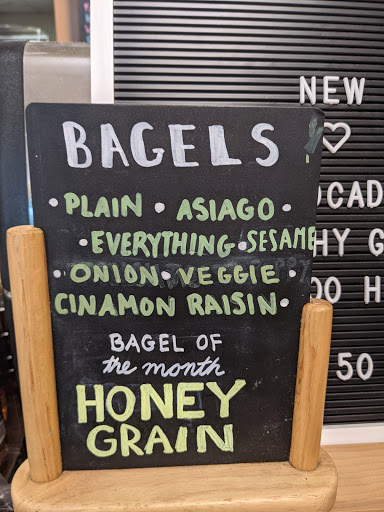 BAGELS
• PLAIN • ASIAGO •
• EVERYTHING • SESAME
• ONION • VEGGIE •
CINAMON RAISIN •
BAGEL OF
the month
HONEY
GRAIN
NEW
50